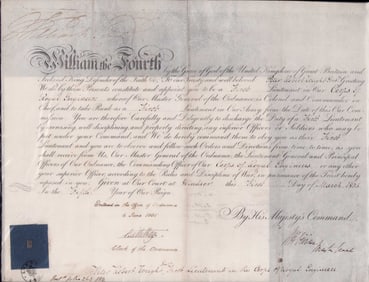 William the Fourth by the Grace of God of the United Kingdom of Great Britain and
Ireland King, Defender of the Faith &c. To our trusty and well beloved Greeting
We do by these Presents constitute and appoint you to be a First Lieutenant in Our Corps of
Royal Engineers whereof Our Master General of the Ordnance is Colonel and Commander in
Chief and to take Rank as a First Lieutenant in Our Army from the Date of this Our
You are therefore Carefully and Diligently to discharge the Duty of a First Lieutenant
by exercising and disciplining and properly directing any inferior Officers or Soldiers who may be
put under your Command, and We do hereby command them to obey you as their First
Lieutenant and you are to observe and follow such Orders and Directions from time to time, as you
shall receive from Us, Our Master General of the Ordnance, Lieutenant General and Principal
Officers of Our Ordnance, the Commanding Officer of Our Corps of Royal Engineers or any other
your superior Officer, according to the Rules and Discipline of War, in pursuance of the Trust hereby
reposed in you. Given at Our Court at Windsor this First Day of March 1835
In the Fifth Year of Our Reign
Entered in the Office of Ordnance
6 June 1835
By His Majesty's Command
Clerk of the Ordnance
First Lieutenant in the Corps of Royal Engineers